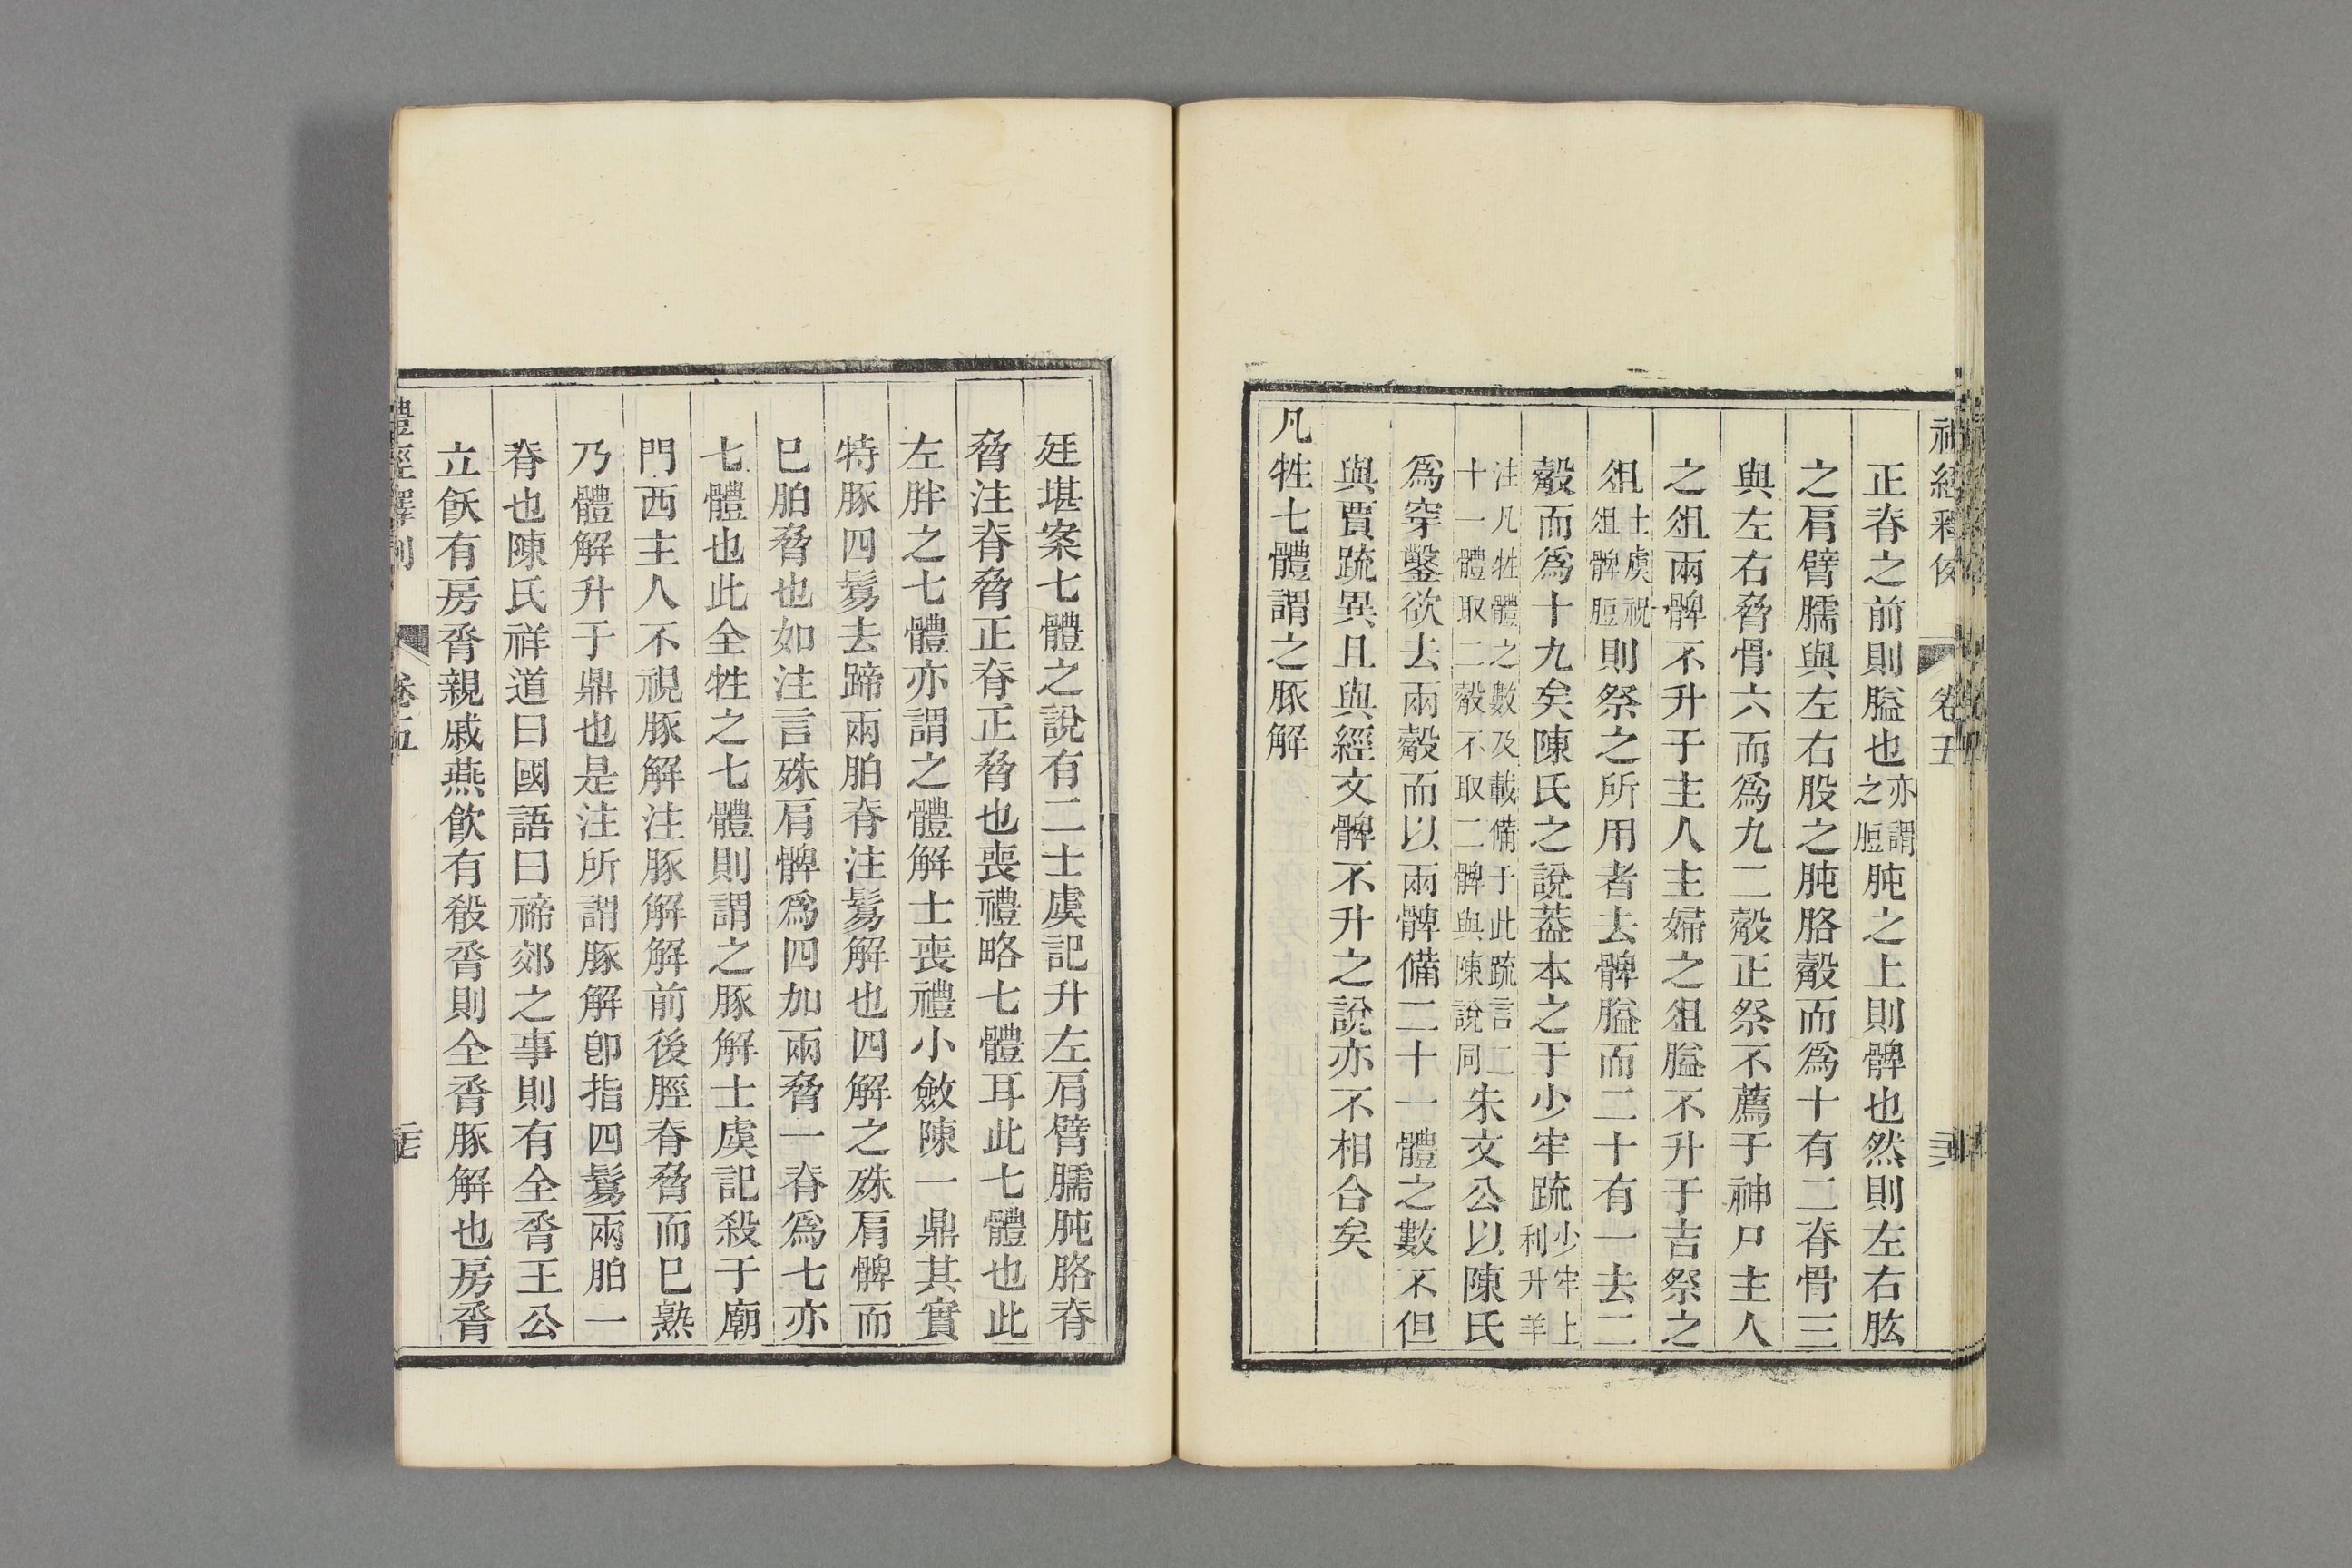 正脊之前則膉也亦謂之脰肫之上則髀也然則左右肱
之肩臂臑與左右股之肫胳觳而爲十有二脊骨三
與左右脅骨六而爲九二觳正祭不薦于神尸主人
之俎兩髀不升于主人主婦之俎膉不升于吉祭之
俎士虞祝俎髀脰則祭之所用者去髀膉而二十有一去二
觳而爲十九矣陳氏之說葢本之于少牢疏少牢上利升羊
注凡牲體之數及載備于此疏言二十一體取二觳不取二髀與陳說同朱文公以陳氏
爲穿鑿欲去兩觳而以兩髀備二十一體之數不但
與賈疏異且與經文髀不升之說亦不相合矣
凡牲七體謂之豚解
廷堪案七體之說有二士虞記升左肩臂臑肫胳脊
脅注脊脅正脊正脅也喪禮略七體耳此七體也此
左胖之七體亦謂之體解士喪禮小斂陳一鼎其實
特豚四鬄去蹄兩胉脊注鬄解也四解之殊肩髀而
巳胉脅也如注言殊肩髀爲四加兩脅一脊爲七亦
七體也此全牲之七體則謂之豚解士虞記殺于廟
門西主人不視豚解注豚解解前後脛脊脅而巳熟
乃體解升于鼎也是注所謂豚解卽指四鬄兩胉一
脊也陳氏祥道曰國語曰禘郊之事則有全脀王公
立飫有房脀親戚燕飲有殽脀則全脀豚解也房脀
禮經釋例
卷五